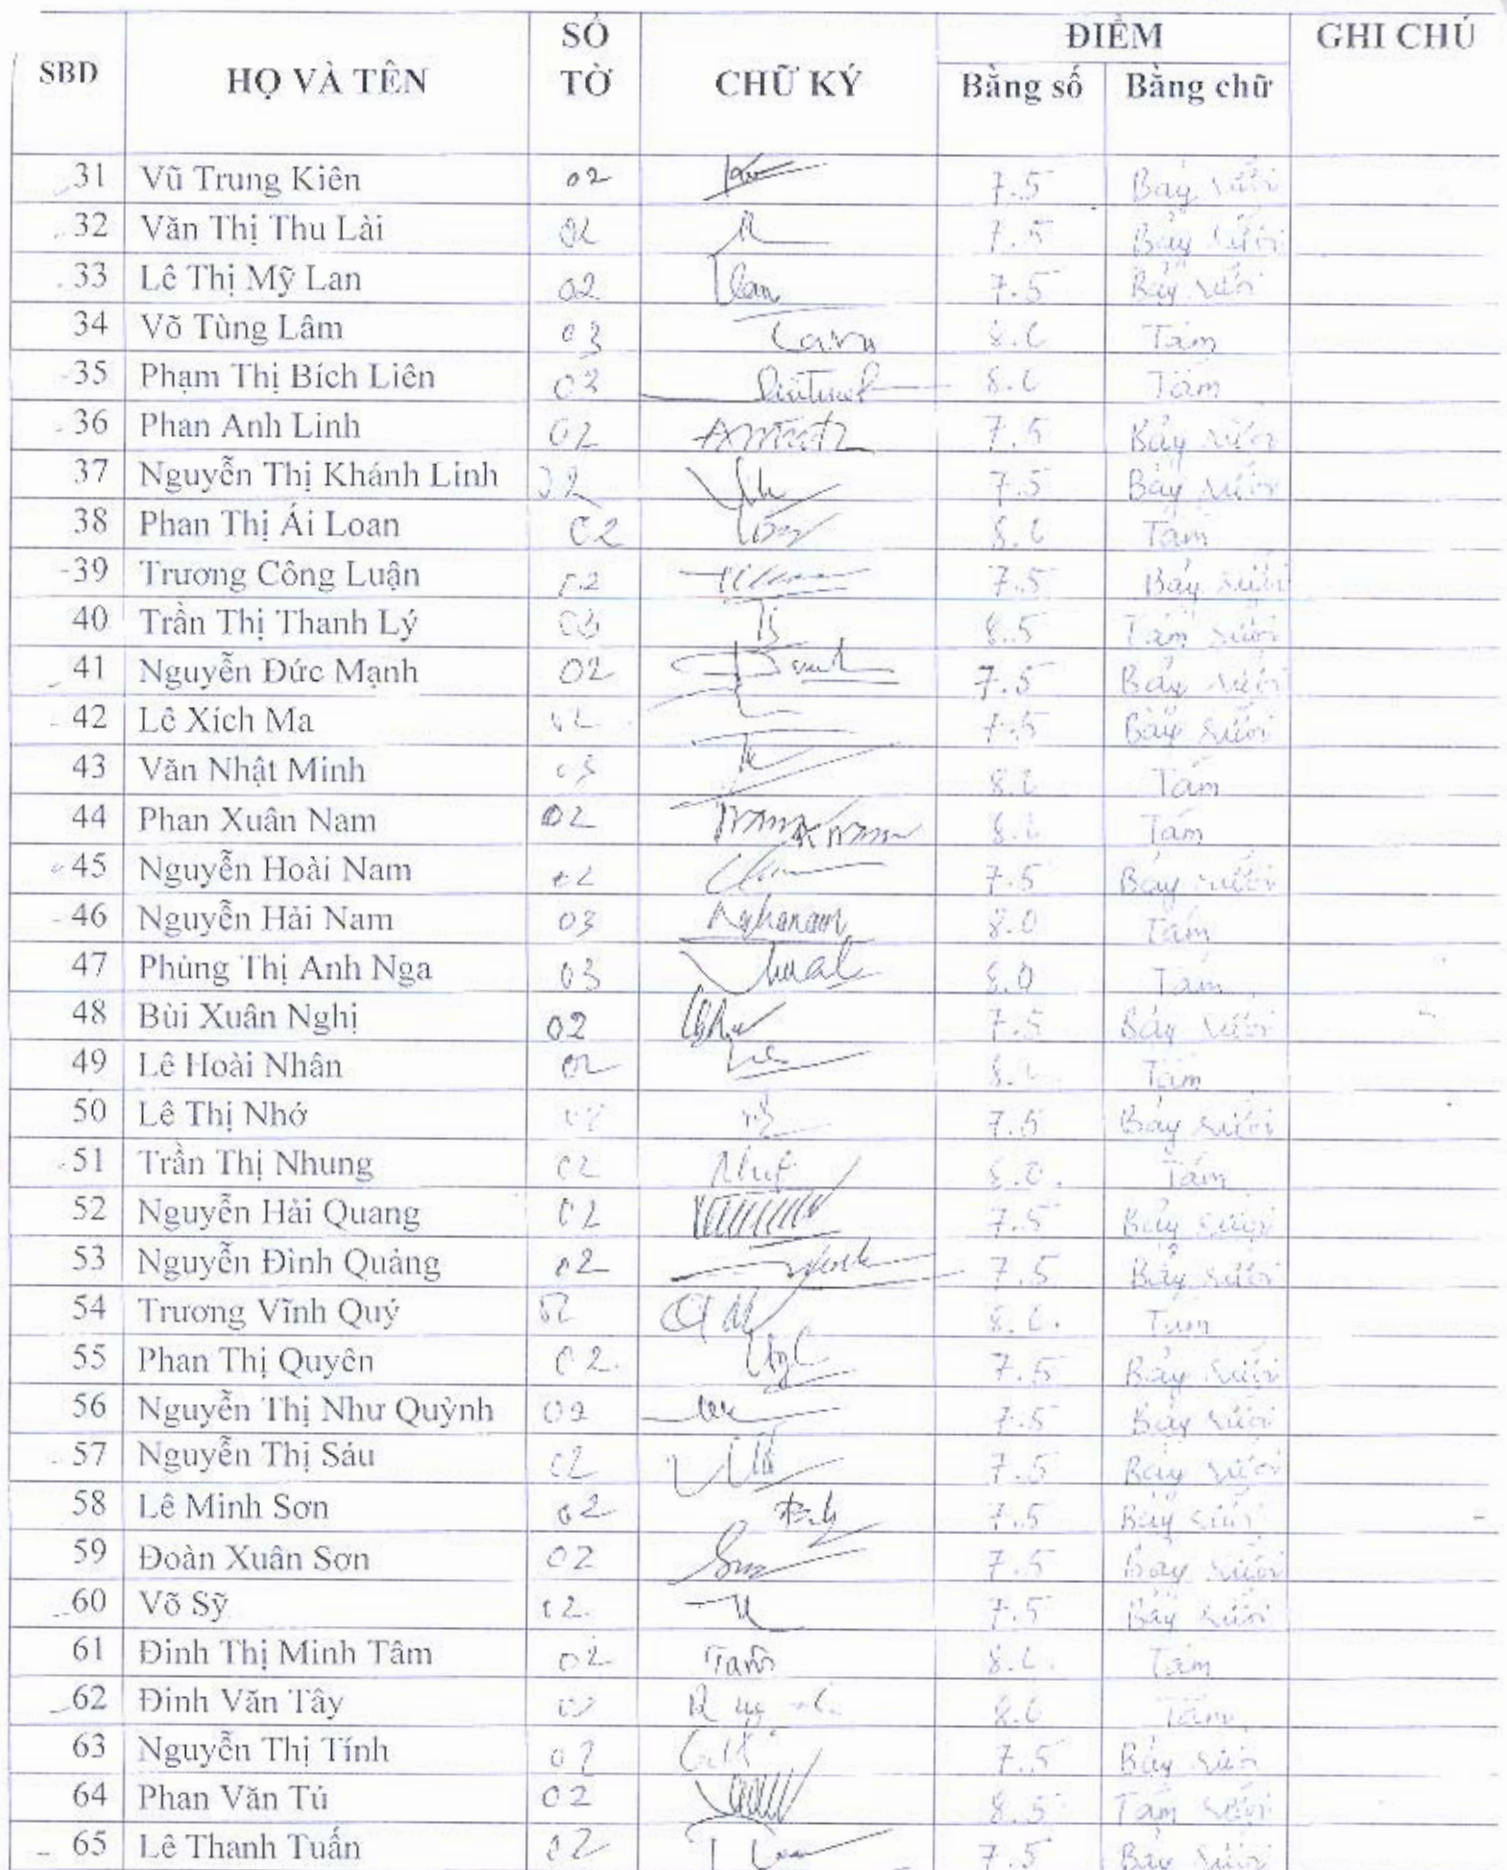 SBD HỌ VÀ TÊN SỐ TỜ CHỮ KÝ ĐIỂM GHI CHÚ
Bằng số Bằng chữ
31 Vũ Trung Kiên 02 7.5 Bảy rưỡi
32 Văn Thị Thu Lài 02 7.5 Bảy rưỡi
33 Lê Thị Mỹ Lan 02 Lan 7.5 Bảy rưỡi
34 Võ Tùng Lâm 03 Lam 8.0 Tám
35 Phạm Thị Bích Liên 03 8.0 Tám
36 Phan Anh Linh 02 7.5 Bảy rưỡi
37 Nguyễn Thị Khánh Linh 02 7.5 Bảy rưỡi
38 Phan Thị Ái Loan 02 8.0 Tám
39 Trương Công Luận 02 7.5 Bảy rưỡi
40 Trần Thị Thanh Lý 03 8.5 Tám rưỡi
41 Nguyễn Đức Mạnh 02 7.5 Bảy rưỡi
42 Lê Xích Ma 02 7.5 Bảy rưỡi
43 Văn Nhật Minh 03 8.0 Tám
44 Phan Xuân Nam 02 8.0 Tám
45 Nguyễn Hoài Nam 02 7.5 Bảy rưỡi
46 Nguyễn Hải Nam 03 8.0 Tám
47 Phùng Thị Anh Nga 03 8.0 Tám
48 Bùi Xuân Nghị 02 7.5 Bảy rưỡi
49 Lê Hoài Nhân 02 8.0 Tám
50 Lê Thị Nhớ 7.5 Bảy rưỡi
51 Trần Thị Nhung 02 8.0 Tám
52 Nguyễn Hải Quang 02 7.5 Bảy rưỡi
53 Nguyễn Đình Quảng 02 7.5 Bảy rưỡi
54 Trương Vĩnh Quý 02 8.0 Tám
55 Phan Thị Quyên 02 7.5 Bảy rưỡi
56 Nguyễn Thị Như Quỳnh 02 7.5 Bảy rưỡi
57 Nguyễn Thị Sáu 02 7.5 Bảy rưỡi
58 Lê Minh Sơn 02 7.5 Bảy rưỡi
59 Đoàn Xuân Sơn 02 7.5 Bảy rưỡi
60 Võ Sỹ 02 7.5 Bảy rưỡi
61 Đinh Thị Minh Tâm 02 Tâm 8.0 Tám
62 Đinh Văn Tây 8.0 Tám
63 Nguyễn Thị Tính 02 7.5 Bảy rưỡi
64 Phan Văn Tú 02 8.5 Tám rưỡi
65 Lê Thanh Tuấn 02 7.5 Bảy rưỡi